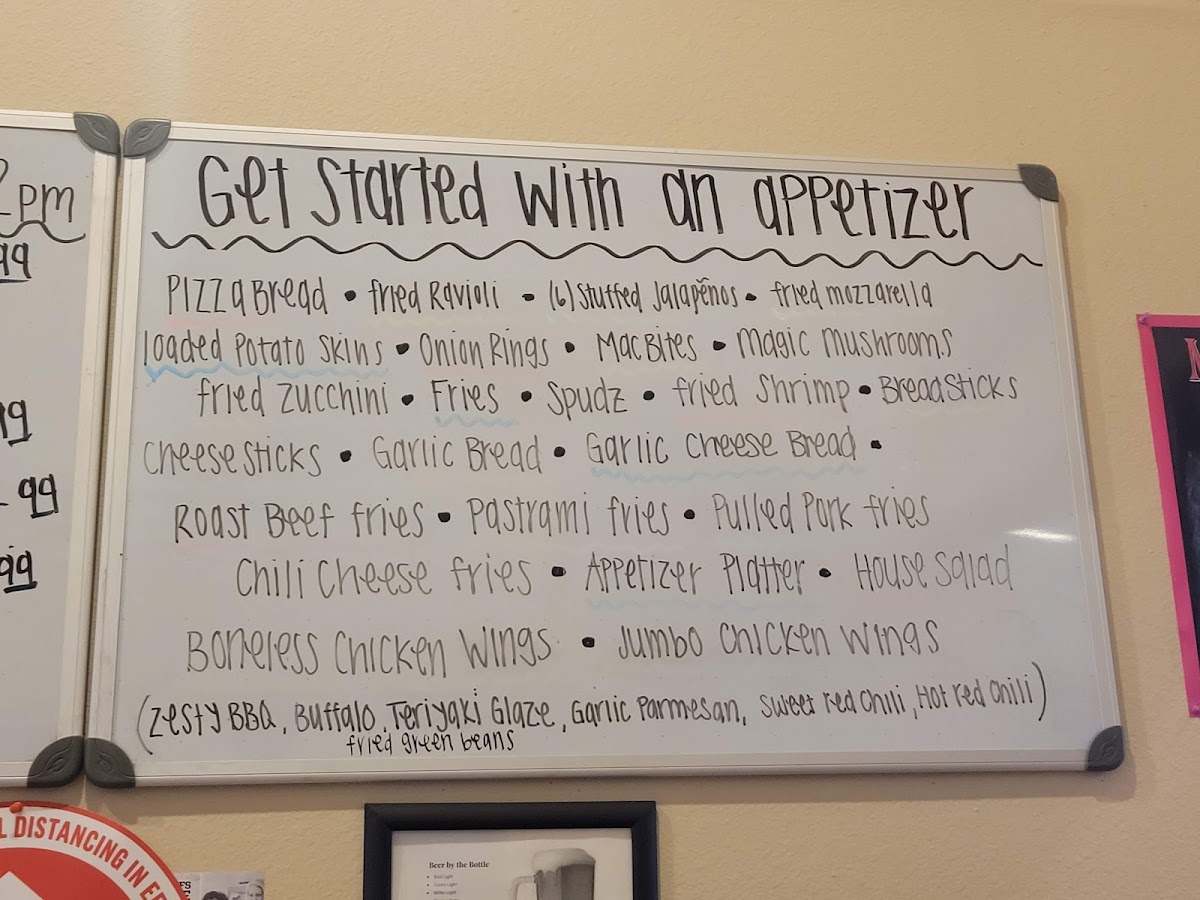 2pm
99
99
99
Get started with an appetizer
Pizza Bread • fried Ravioli • (6) Stuffed Jalapeños • fried mozzarella
loaded Potato Skins • Onion Rings • Mac Bites • Magic mushrooms
fried Zucchini • Fries • Spudz • fried Shrimp • Bread Sticks
Cheese Sticks • Garlic Bread • Garlic Cheese Bread •
Roast Beef fries • Pastrami fries • Pulled Pork fries
Chili Cheese fries • Appetizer Platter • House Salad
Boneless Chicken Wings • Jumbo Chicken Wings
(Zesty BBQ, Buffalo, Teriyaki Glaze, Garlic Parmesan, Sweet red Chili, Hot red Chili)
fried green beans
DISTANCING IN
Beer by the Bottle
• Bud Light
• Coors Light
• Miller Light